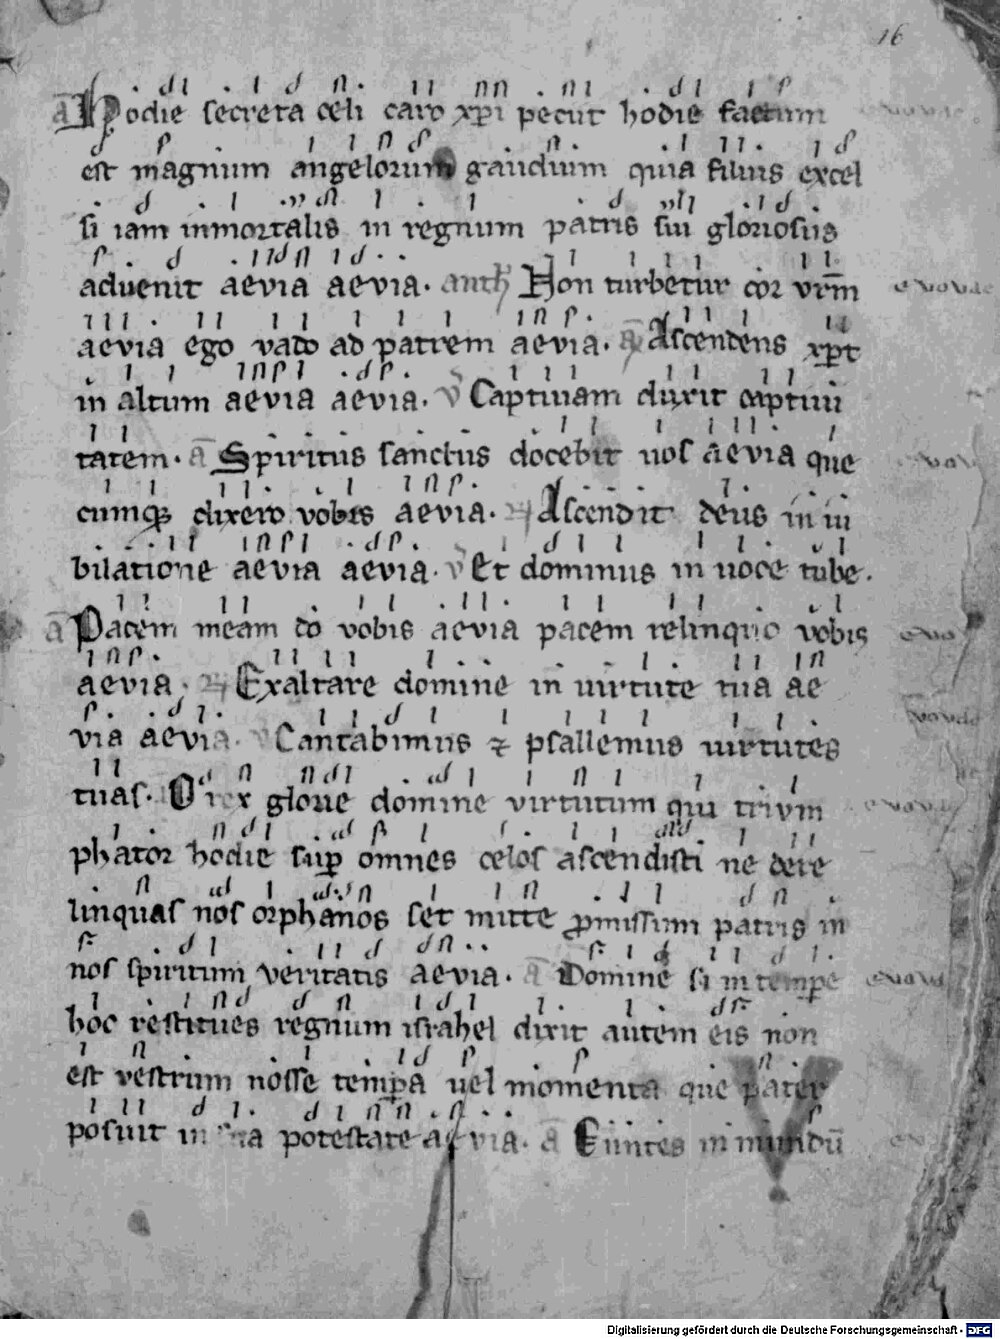 16
a Hodie secreta celi caro xpi petiit hodie factum
est magnum angelorum gaudium quia filius excel
si iam inmortalis in regnum patris sui gloriosus
aduenit aevia aevia. anth Non turbetur cor vrm
aevia ego vado ad patrem aevia. a Ascendens xpt
in altum aevia aevia. v Captiuam duxit captiui
tatem. a Spiritus sanctus docebit uos aevia que
cumq dixero vobis aevia. Ascendit deus in iu
bilatione aevia aevia. v Et dominus in uoce tube.
a Pacem meam do vobis aevia pacem relinquo vobis
aevia. Exaltare domine in uirtute tua ae
via aevia. v Cantabimus ⁊ psallemus uirtutes
tuas. O rex glorie domine virtutum qui trivm
phator hodie sup omnes celos ascendisti ne dere
linquas nos orphanos set mitte pmissum patris in
nos spiritum veritatis aevia. a Domine si in tempe
hoc restitues regnum israhel dixit autem eis non
est vestrum nosse tempa uel momenta que pater
posuit in sua potestate aevia. a Euntes in mundū
Digitalisierung gefördert durch die Deutsche Forschungsgemeinschaft - DFG